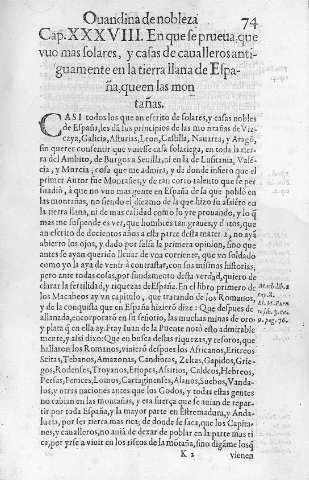 Ouandina de nobleza 74
Cap. XXXVIII. En que se prueua, que
vuo mas solares, y casas de caualleros anti-
guamente en la tierra llana de Espa-
ña, que en las mon
tañas.
CASI todos los que an escrito de solares, y casas nobles
de España, les dã los principios de las mo ntañas de Viz-
caya, Galicia, Asturias, Leon, Castilla, Nauarra, y Aragõ,
sin querer consentir que vuiesse casa solariega, en toda la tier
ra del Ambito, de Burgos a Seuilla, ni en la de Lusitania, Valẽ-
cia, y Murcia; cosa que me admira, y de donde infiero que el
primer Autor fue Montañes, y de tan corto talento que se per
suadiò, à que no vuo mas gente en España de la que poblò en
las montañas, no siendo el diezmo de la que hizo su assiẽto en
la tierra llana, ni de mas calidad como lo yre prouando, y lo q̃
mas me suspende es ver, que hombres tan graues, y d tos, que
an escrito de docientos años a esta parte desta mater a, no ayã
abierto los ojos, y dado por falsa la primera opinion, sino que
antes se ayan querido lleuar de vna corriente, que vn soldado
como yo la aya de venir à contrastar, con sus mismas historias,
pero ante todas cosas, por fundamento desta verdad, quiero de
clarar la fertilidad, y riquezas de España. En el libro primero de
los Macabeos ay vn capitulo, que tratando de los Romanos
y de la conquista que en España hizierõ dize: Que despues de
allanada, encorporaron en su señorio, las muchas minas de oro
y plata q̃ en ella ay. Fray Iuan de la Puente notò esto admirable
mente, y assi dixo: Que en busca destas riquezas, y tesoros, que
hallaron los Romanos, vinierõ despues los Africanos, Eritreos
Scitas, Tebanos, Amazonas, Candiotas, Zeltas, Gapidos, Grie-
gos, Rodenses, Troyanos, Etiopes, Assirios, Caldeos, Hebreos,
Persas, Fenices, Lomos, Cartaginenses, Alanos, Suebos, Vanda-
los, y otras naciones antes que los Godos, y todas estas gentes
no cabian en las montañas, y era fuerça que se auian de repar-
tir por toda España, y la mayor parte en Estremadura, y Anda-
luzia, por ser tierra mas rica; de donde se saca, que los Capita-
nes, y caualleros, no auiã de dexar de poblar en la parte mas ri
ca, por yrse a viuir en los riscos de la mõtaña, sino digãme los q̃
K 2 vienen